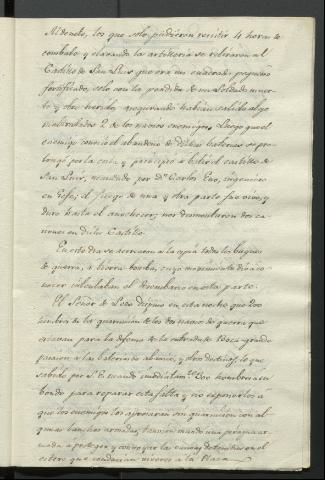 Aldonete, los que solo pudieron resistir 4 horas de
combate, y clavando la artilleria se retiraron al
Castillo de San Luis que era un cuadrado pequeño
fortificado, solo con la perdida de un soldado muer-
to y otro herido, asegurando habian salido algo
maltratados 2 de los navios enemigos; Luego que el
enemigo conocio el abandono de dichas baterias se pro-
longó por la costa, y principio á batir el castillo de
San Luis, mandado por Dn Carlos Eno, ingeniero
en Gefe; el fuego de una y otra parte fue vivo, y
duro hasta el anochecer; nos desmontaron dos ca-
ñones en dicho Castillo.
En este dia se acercaron á la costa todos los buques
de guerra, y bicon bomba, cuyo movimiento dió á co-
nocer intentaban el desembarco en esta parte.
El Señor de Lezo dispuso en esta noche que 200
hombres de la guarnicion de los dos navios de guerra que
estaban para la defensa de la entrada de Boca-grande
pasasen á las baterias de abajo, y otros destinos, lo que
sabido por S.E. mando inmediatamte 200 hombres á su
bordo para reparar esta falta y no esponerlos á
que los enemigos los apresaran sin guarnicion con al-
gunas lanchas armadas; tambien mandó una piragua ar-
mada á proteger y convoyar las canoas detenidas en el
estero que conducian viveres á la Plaza